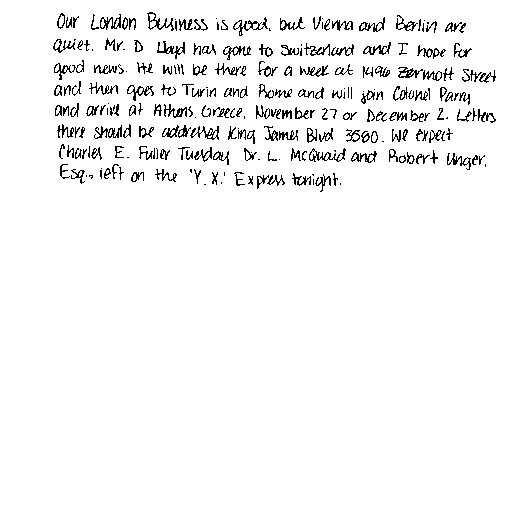 Our London Business is good, but Vienna and Berlin are
quiet. Mr. D Lloyd has gone to Switzerland and I hope for
good news. He will be there for a week at 1496 Zermott Street
and then goes to Turin and Rome and will join Colonel Parry
and arrive at Athens, Greece, November 27 or December 2. Letters
there should be addressed King James Blvd 3580. We expect
Charles E. Fuller Tuesday. Dr. L. McQuaid and Robert Unger,
Esq., left on the 'Y. X.' Express tonight.